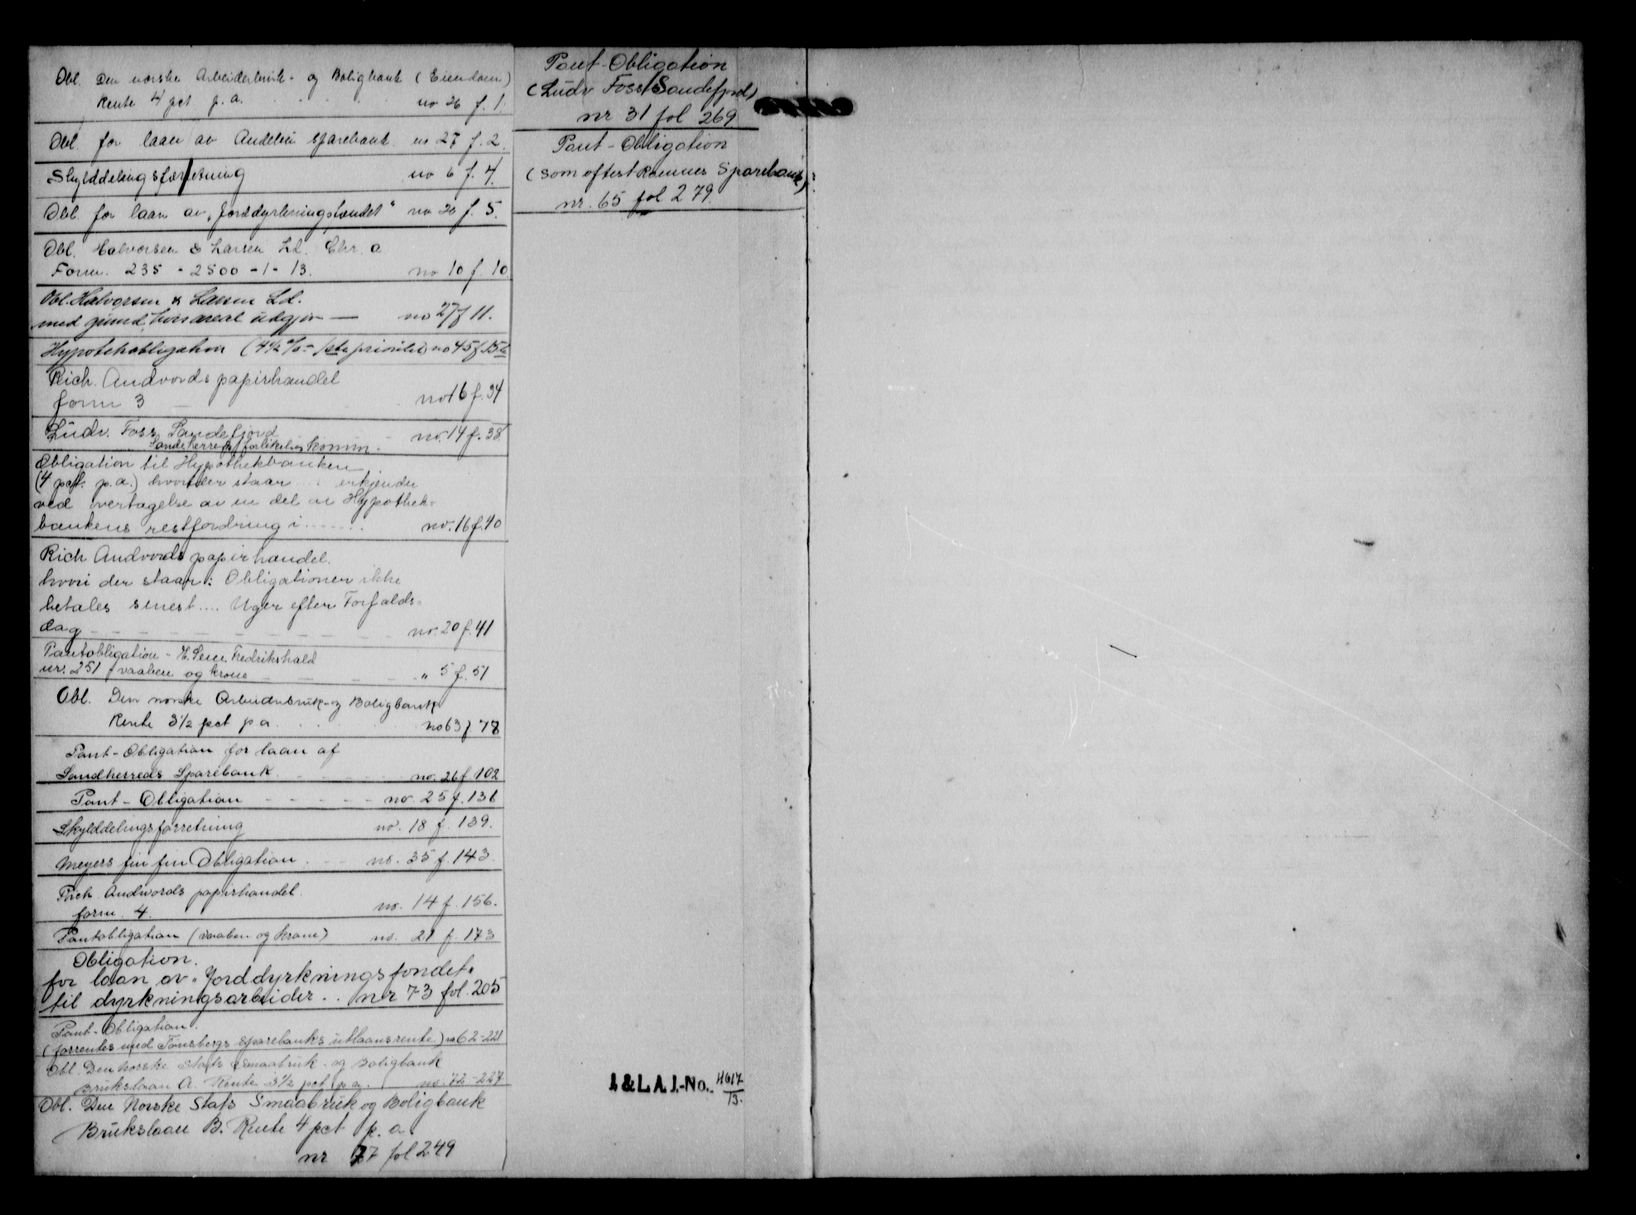 Obl. Den norske Arbeiderbruk- og Boligbank (Eiendom)
Rente 4 pct. p.a. no 26 f. 1.
Obl. for laan av Andebu Sparebank no 27 f. 2.
Skylddelingsforretning no 6 f. 4.
Obl. for laan av „Jorddyrkningsfondet" no 20 f. 5.
Obl. Halvorsen & Larsen Ld. Chr. a
Form. 235 - 2500 - 1 - 13. no 10 f. 10
Obl. Halvorsen & Larsen Ld.
med grund, hvis areal udgjør — no 27 f 11.
Hypothekobligation (4½ % - 1ste prioritet) no 45 f 15
Rich. Andvords papirhandel
form 3 no 16 f. 34
Ludv. Foss Sandefjord no. 14 f. 38.
Sandeherreds forlikelseskomm.
Obligation til Hypothekbanken
(4 pct. p.a.) hvori der staar ... erkjender
ved overtagelse av en del av Hypothek-
bankens restfordring i ...... no. 16 f. 40
Rich Andvords papirhandel.
hvori der staar: Obligationen ikke
betales senest .... Uger efter Forfalds-
dag no. 20 f. 41
Pantobligation - Fredrikshald
nr. 251 (vaaben og krone „ 5 f. 51
Obl. Den norske Arbeiderbruk- og Boligbank
Rente 3½ pct p a. no 63 f 78
Pant-Obligation for laan af
Sandherreds Sparebank no. 26 f. 102
Pant-Obligation no. 25 f. 136
Skylddelingsforretning no. 18 f. 139.
Meyers fin fin Obligation no. 35 f. 143.
Rich. Andvords papirhandel.
form. 4. no. 14 f. 156.
Pantobligation (vaaben og krone) no. 21 f. 173
Obligation.
for laan av „Jorddyrkningsfondet"
til dyrkningsarbeider .. nr 73 fol. 205
Pant-Obligation.
(forrentes med Tønsbergs Sparebanks utlaansrente) no 62-221
Obl. Den norske Stats Smaabruk- og Boligbank
Brukslaan A. Rente 3½ pct p.a. no. 72-227
Obl. Den Norske Stats Smaabruk og Boligbank
Brukslaan B. Rente 4 pct p. a.
nr 77 fol 249
Pant-Obligation
(Ludv Foss Sandefjord)
nr 31 fol 269
Pant-Obligation
(som oftest Ramnes Sparebank)
nr. 65 fol 279.
I. & L. A. J.-No. 4617/13.